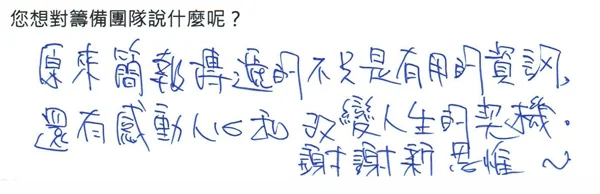 您想對籌備團隊說什麼呢？
原來簡報傳遞的不只是有用的資訊,
還有感動人心和改變人生的契機。
謝謝新思惟～